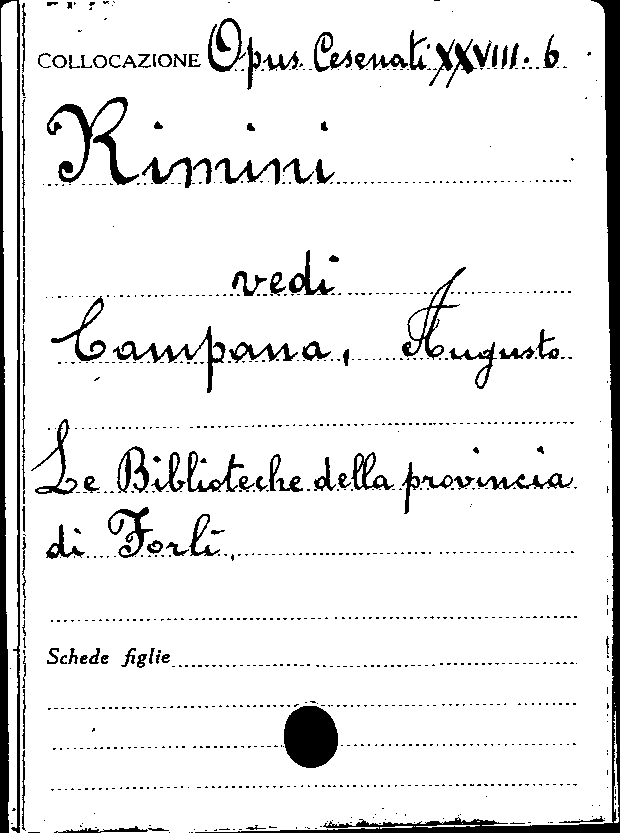 COLLOCAZIONE Opus. Cesenati XXVIII. 6
Rimini
vedi
Campana, Augusto
Le Biblioteche della provincia
di Forlì.
Schede figlie